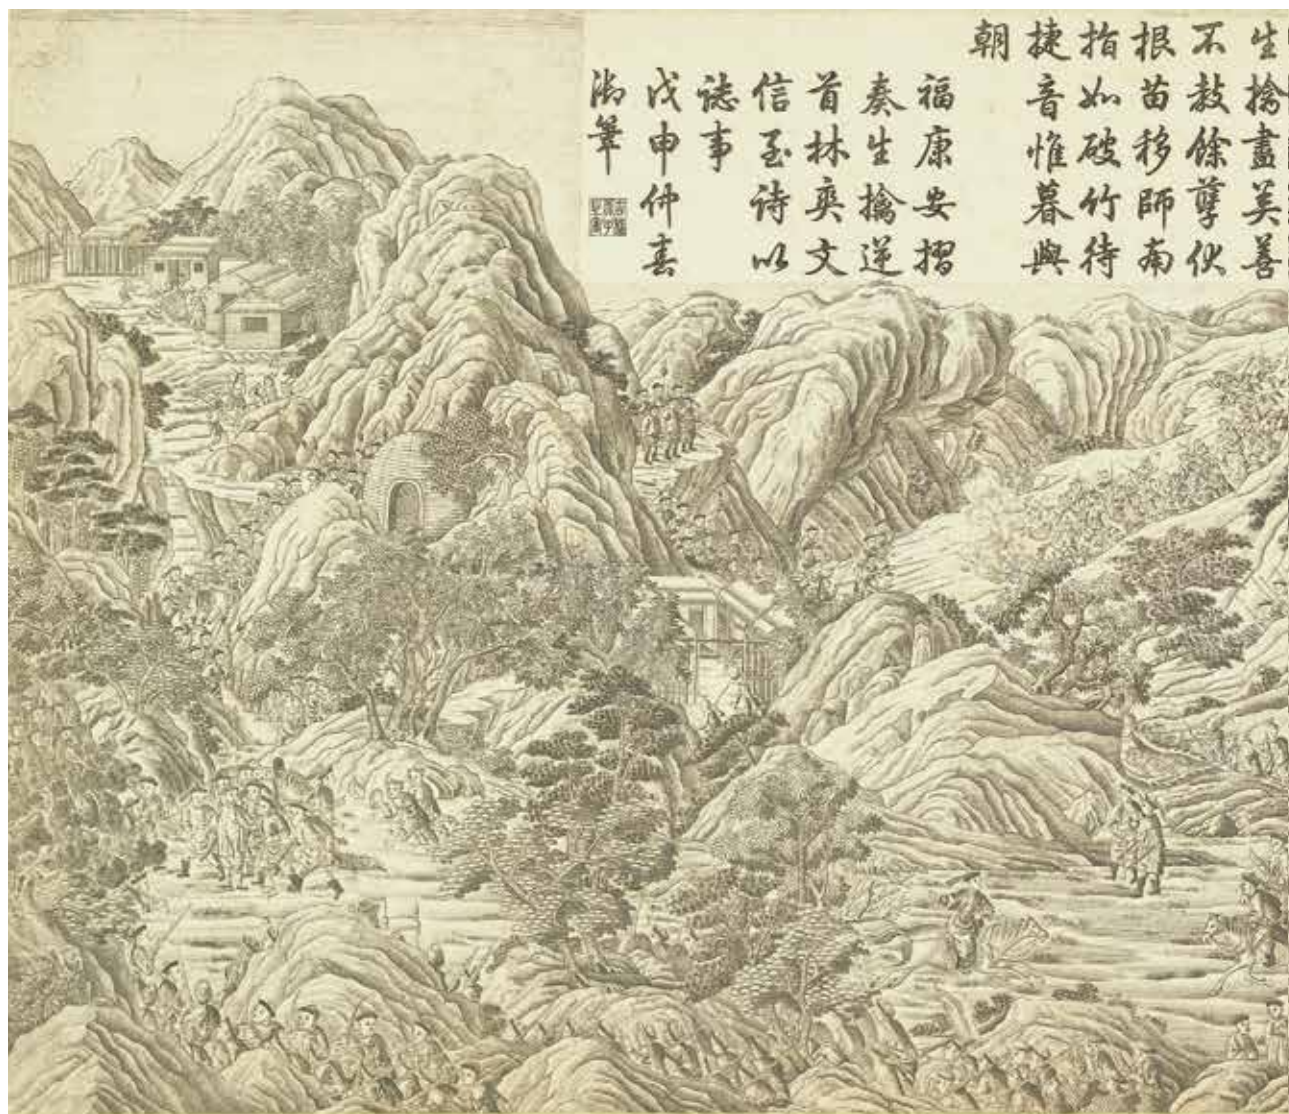 生擒盡美善
不教餘孽伏
根苗移師南
指如破竹待
捷音惟暮與
朝
福康安摺
奏生擒逆
首林爽文
信至詩以
誌事
戊申仲春
御筆